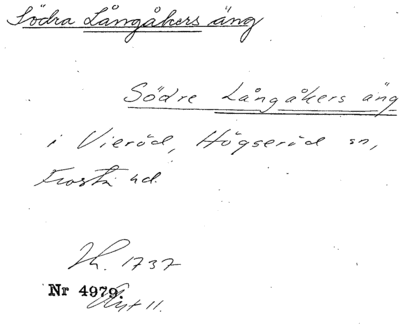 Södra Långåkers äng
Södre Långåkers äng
i Vieröd, Högseröd sn,
Frosta hd.
1737
Nr 4979.
Akt 11.